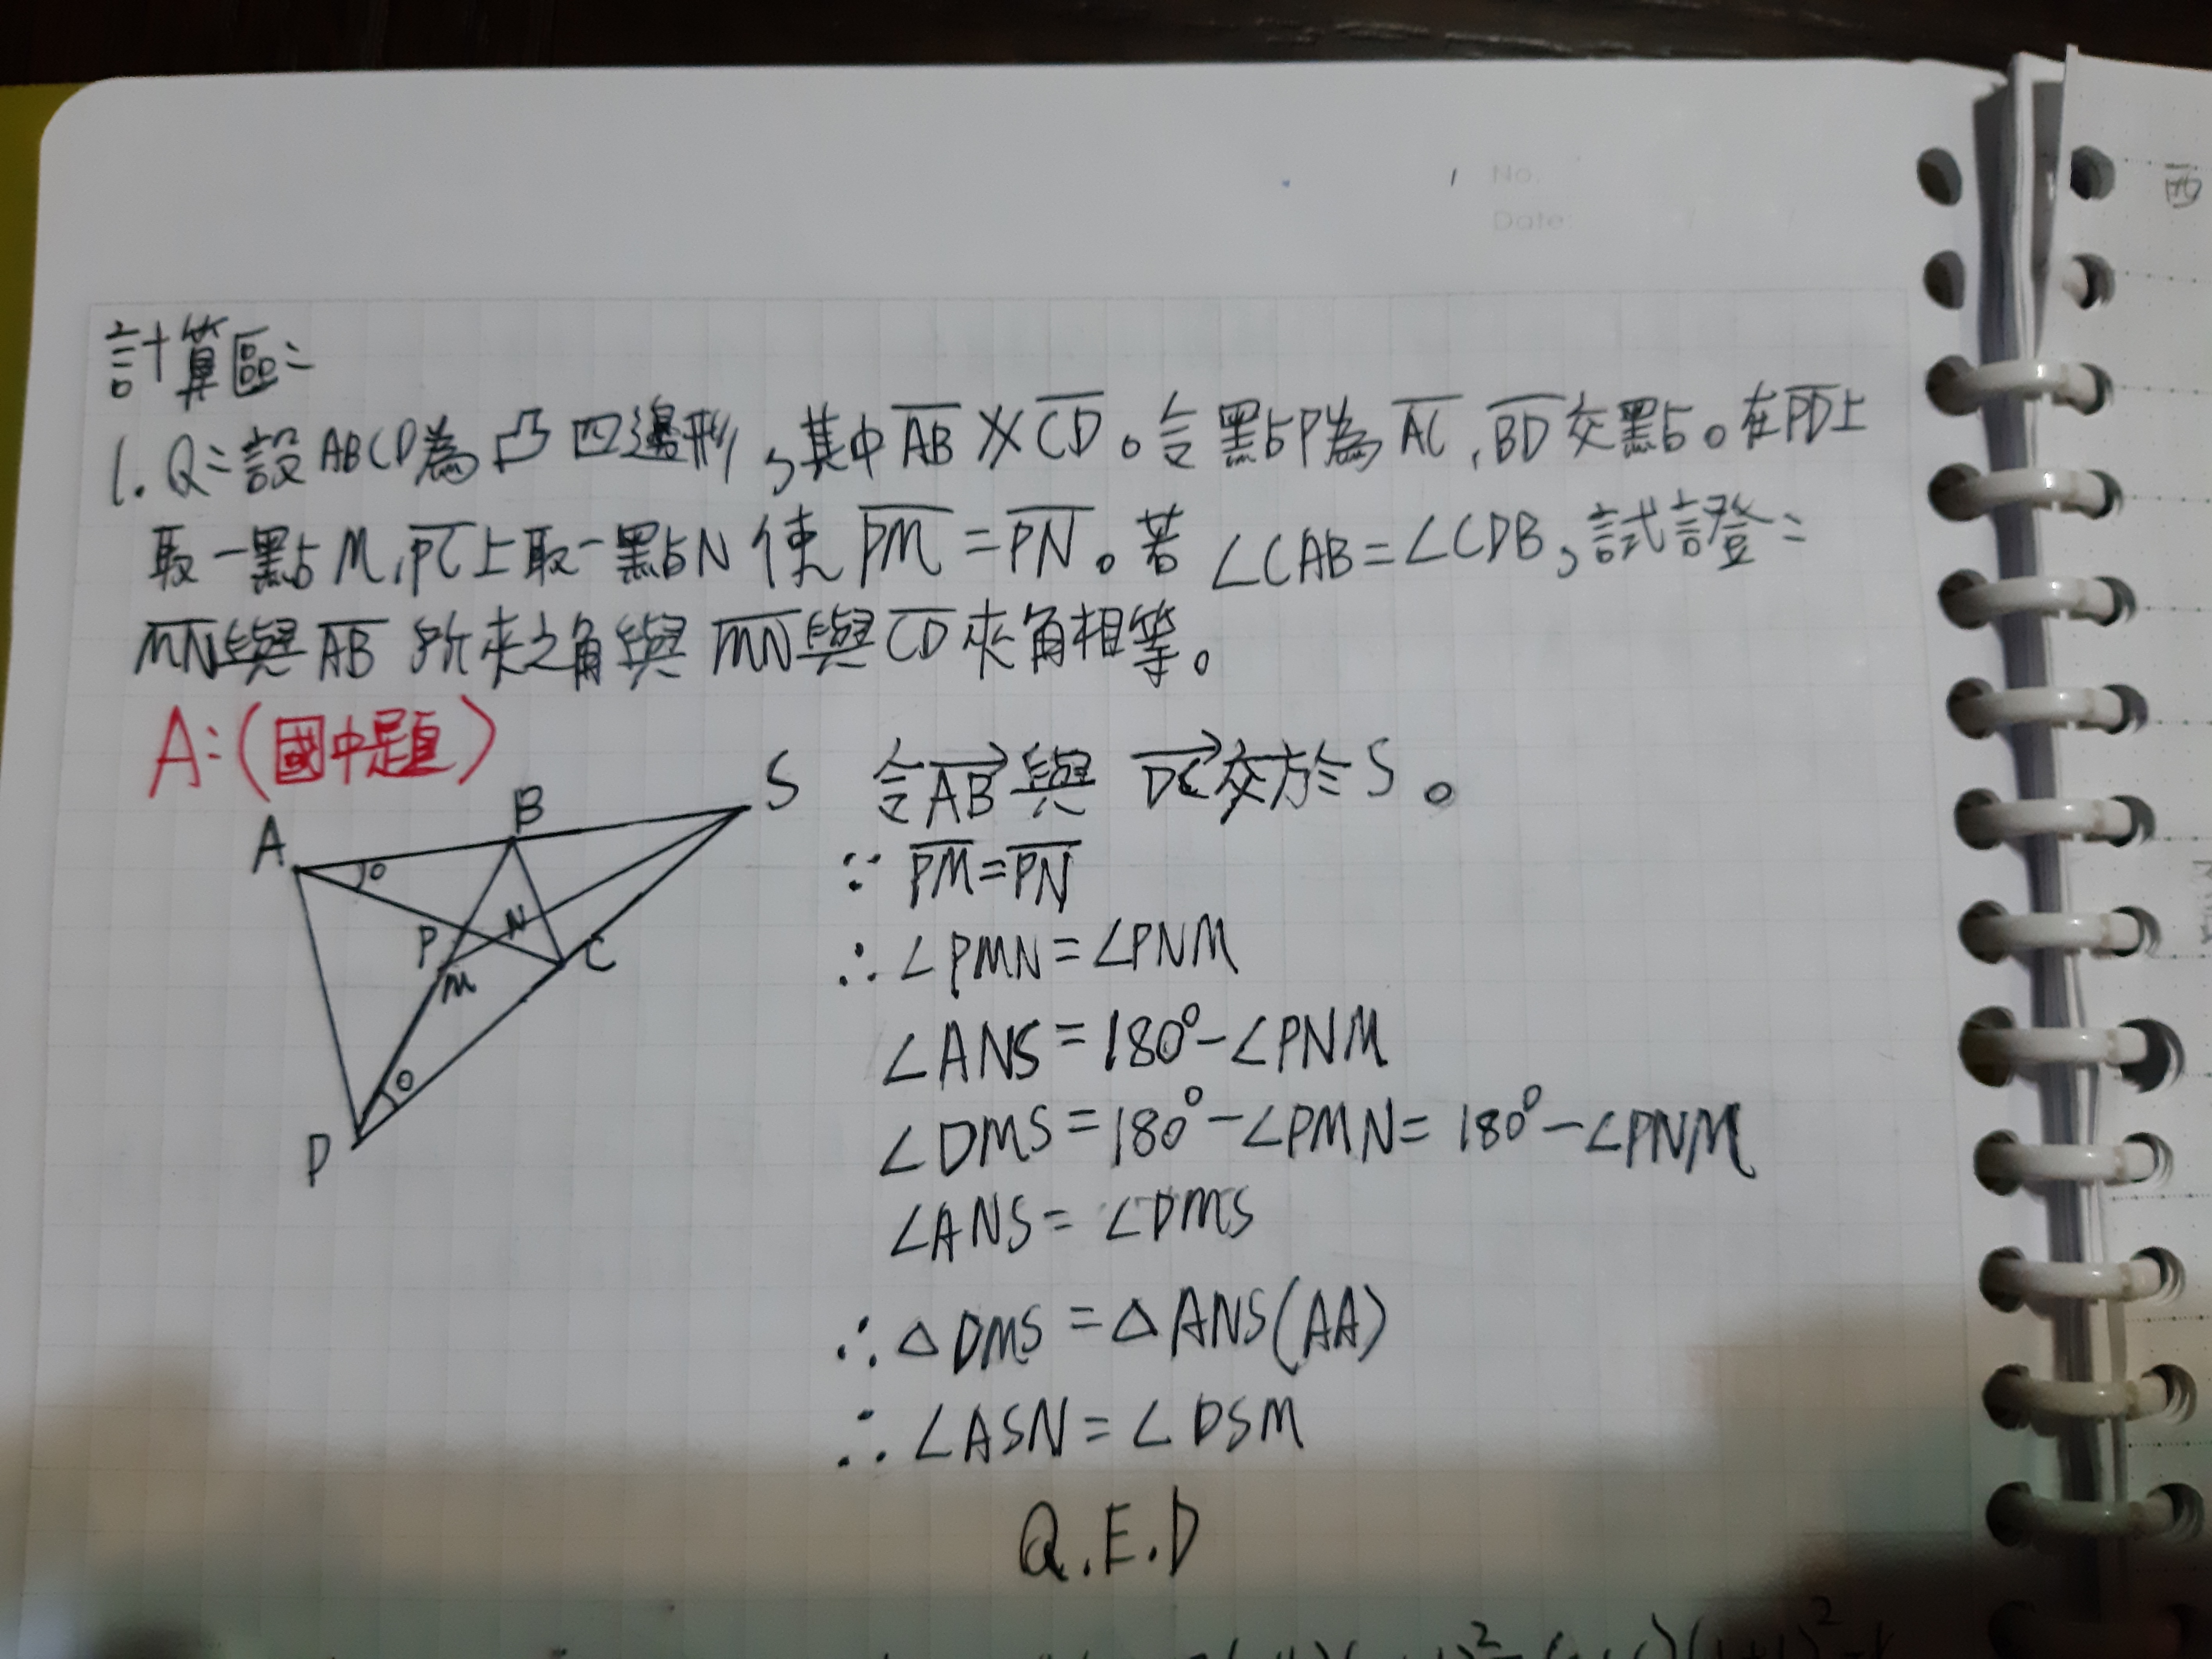 No.
Date:
計算區:
1. Q:設ABCD為凸四邊形,其中AB∦CD。令點P為AC,BD交點。在PD上
取一點M,PC上取一點N使PM=PN。若∠CAB=∠CDB,試證:
MN與AB所夾之角與MN與CD夾角相等。
A:(國中題)
令AB與DC交於S。
∵ PM=PN
∴ ∠PMN=∠PNM
∠ANS=180°-∠PNM
∠DMS=180°-∠PMN=180°-∠PNM
∠ANS=∠DMS
∴ △DMS=△ANS(AA)
∴ ∠ASN=∠DSM
Q.E.D
A
B
S
P
N
M
C
D